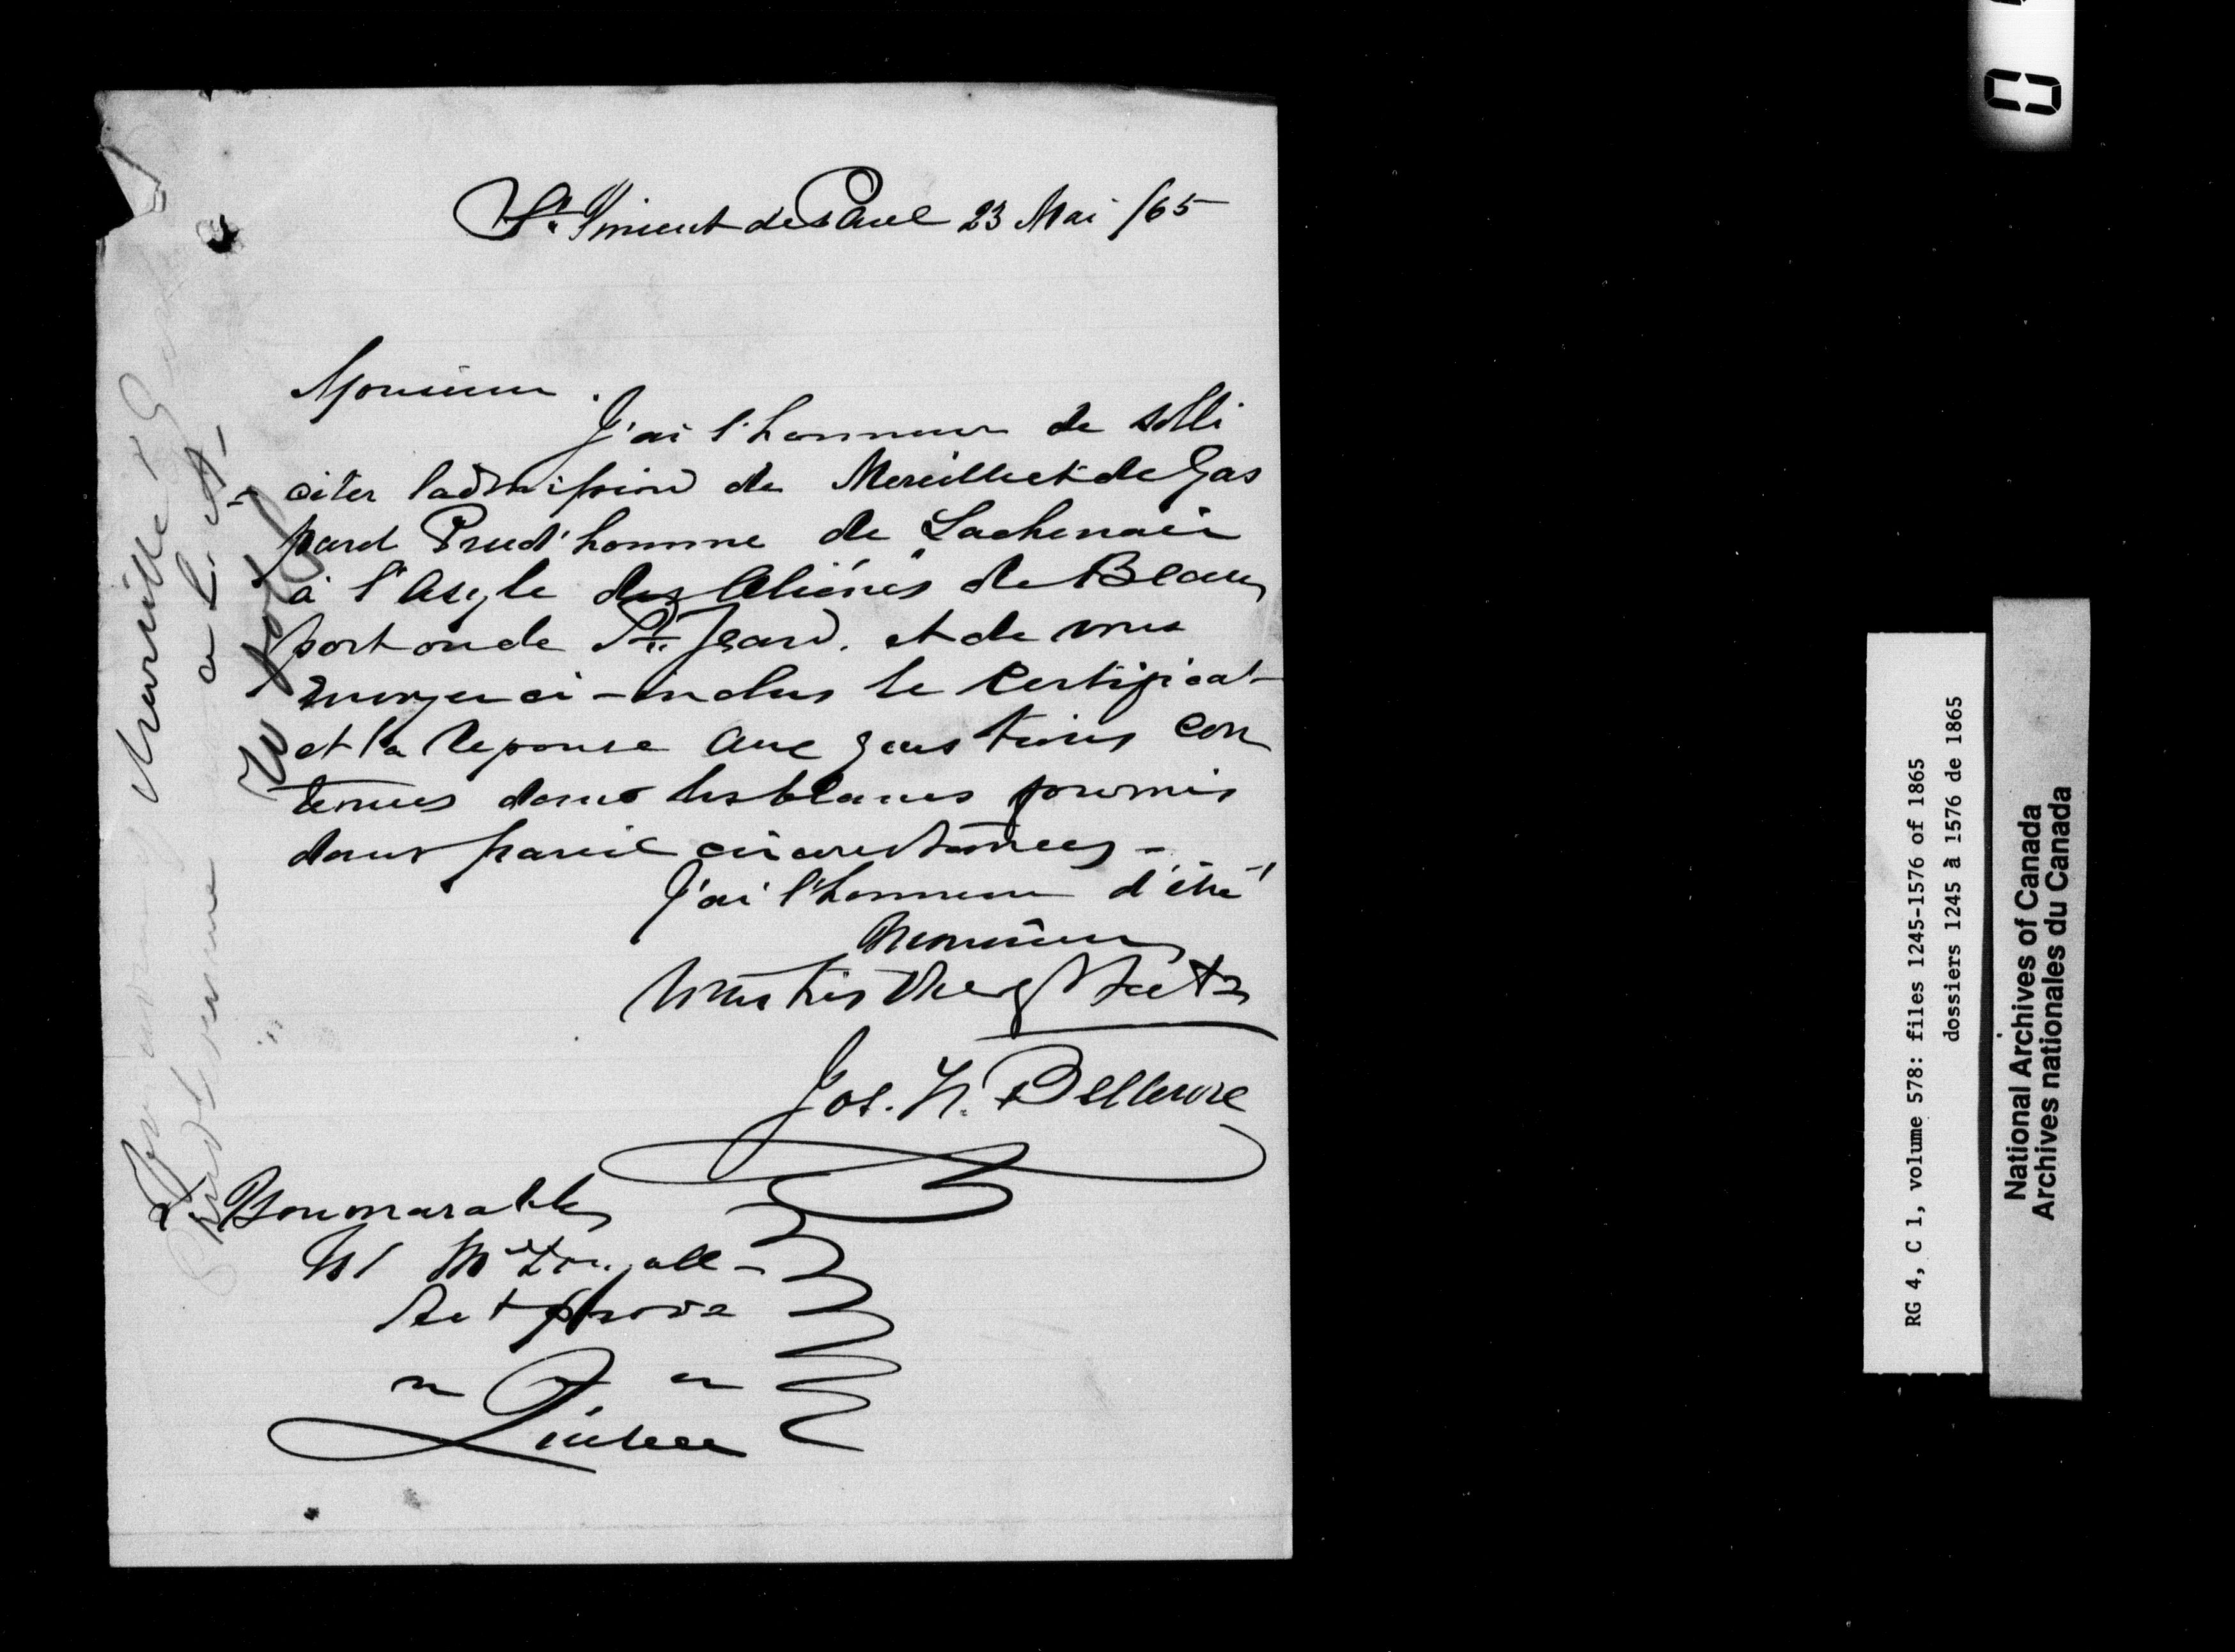 St. Vincent de Paul 23 Mai /65
Monsieur.
J'ai l'honneur de solli
citer l'admission de Mereille et de Gas
pard Prud'homme de Lachenaie
à l'Asyle des Aliénés de Beau
port ou de St. Jean. et de vous
envoyer ci-inclus le Certificat
et la reponse aux questions con
tenues dans les blancs fournis
dans pareil circonstances -
J'ai l'honneur d'être
Monsieur
Votre très
Jos. H. Bellerose
L'Honorable
Wm McDougall -
Sect prov
Québec
Mereille & G
Prudhomme a L. A-
RG 4, C 1, volume 578: files 1245-1576 of 1865
dossiers 1245 à 1576 de 1865
National Archives of Canada
Archives nationales du Canada